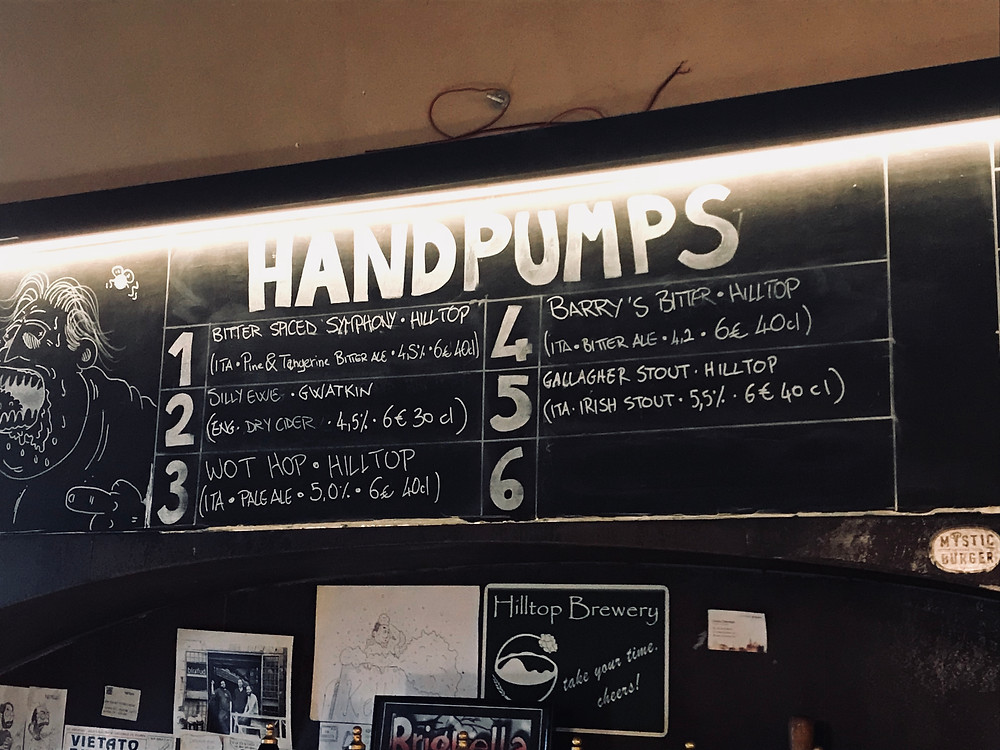 HANDPUMPS
1 BITTER SPICED SYMPHONY • HILLTOP
(ITA • Pine & Tangerine BITTER ALE • 4,5% • 6€ 40cl)
2 SILLY EWE • GWATKIN
(ENG. DRY CIDER • 4,5% • 6€ 30 cl)
3 WOT HOP • HILLTOP
(ITA • PALE ALE • 5,0% • 6€ 40cl)
4 BARRY'S BITTER • HILLTOP
(ITA • BITTER ALE • 4,2 • 6€ 40cl)
5 GALLAGHER STOUT • HILLTOP
(ITA • IRISH STOUT • 5,5% • 6€ 40 cl)
6
MYSTIC
BURGER
Hilltop Brewery
take your time.
cheers!
Brighella
VIETATO